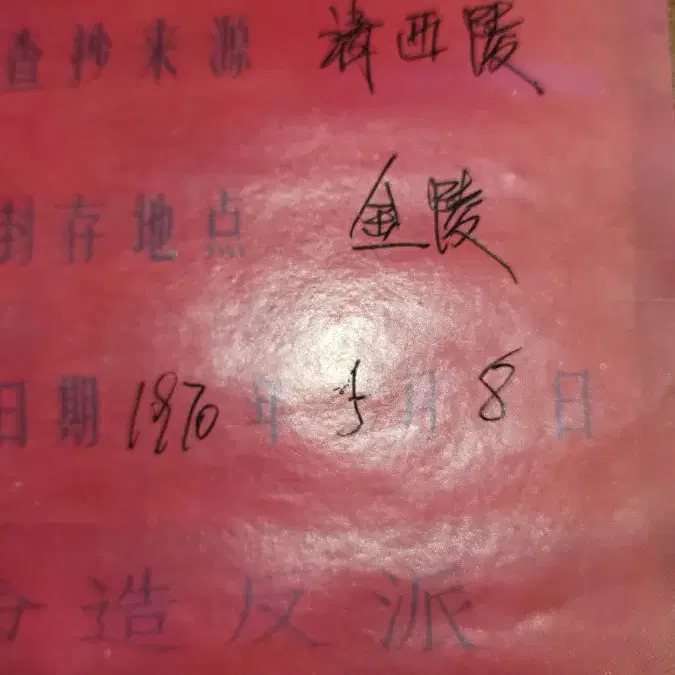 查抄来源 清西陵
封存地点 金陵
日期 1970年 5月 8日
造反派